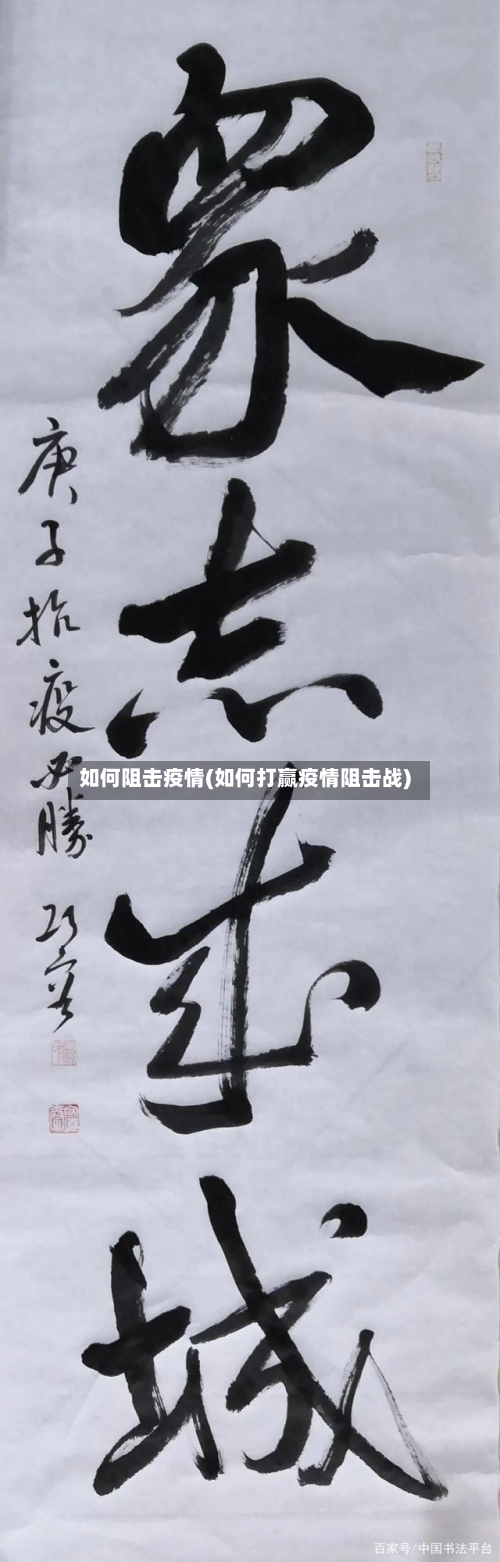 眾志成城
庚子抗疫必勝
如何阻击疫情(如何打赢疫情阻击战)
百家号/中国书法平台